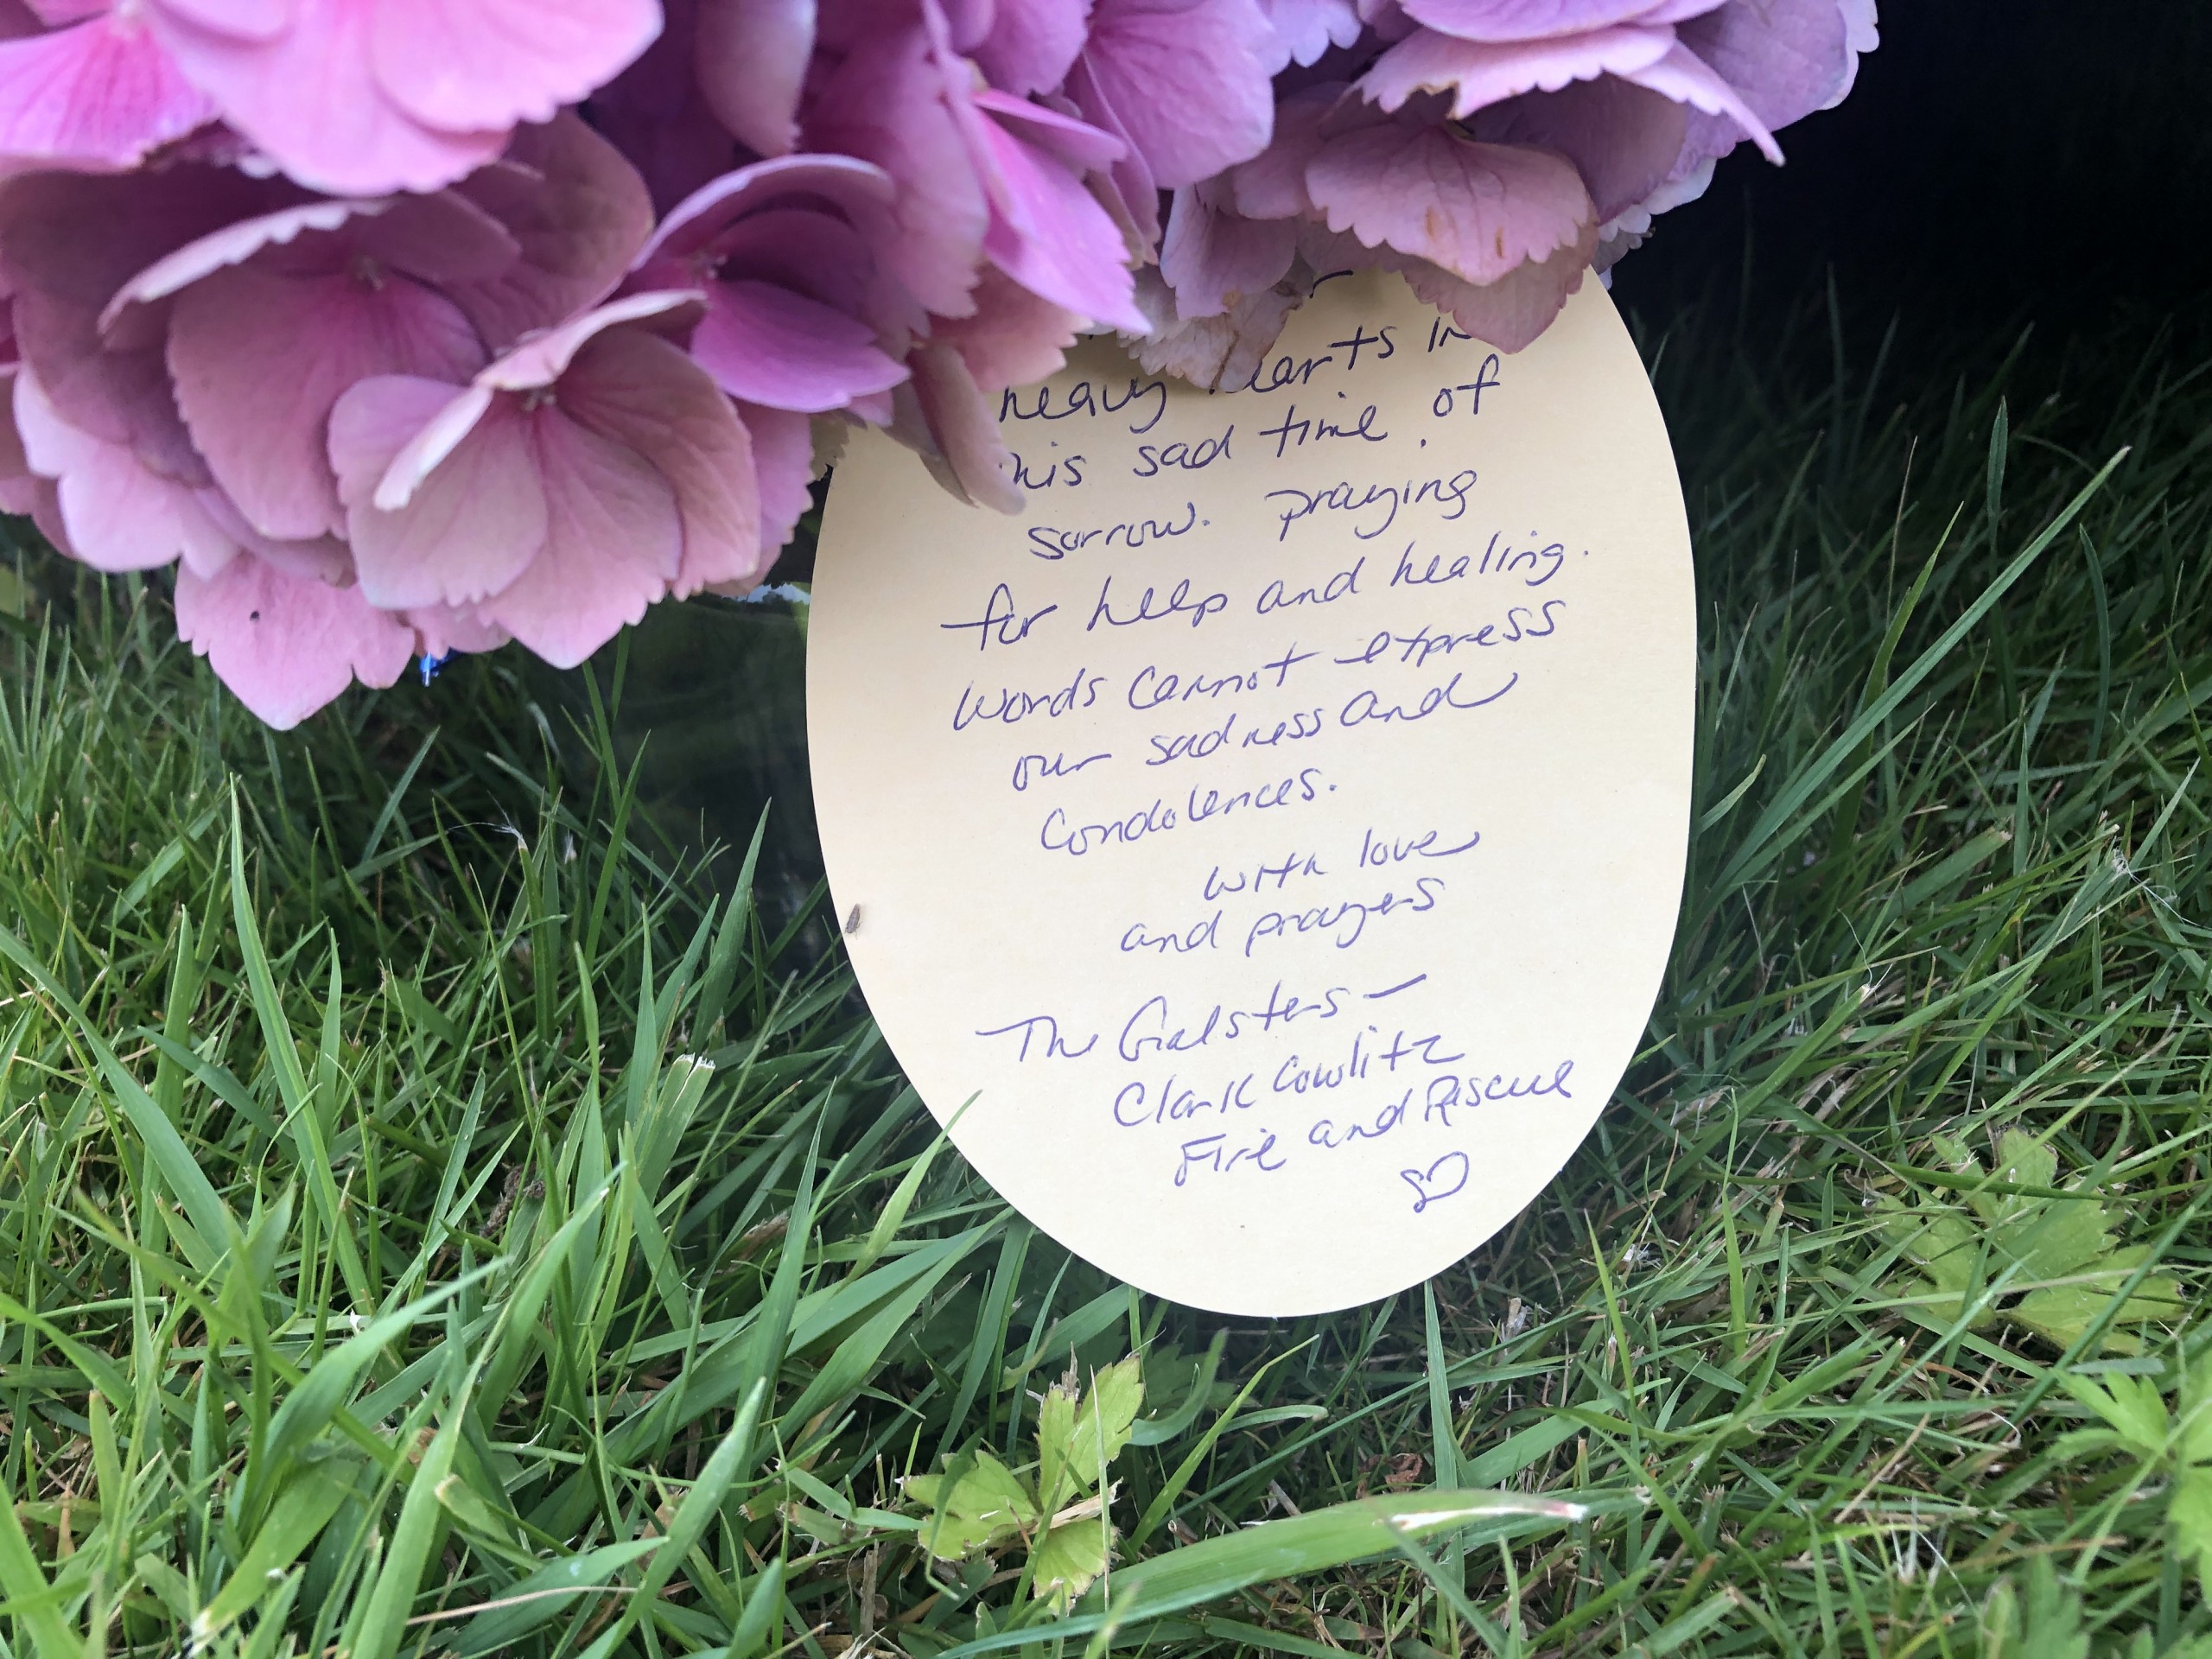 heavy hearts in
this sad time of
sorrow. praying
for help and healing.
words cannot express
our sadness and
Condolences.
with love
and prayers
The Galsters —
Clark Cowlitz
Fire and Rescue
♡